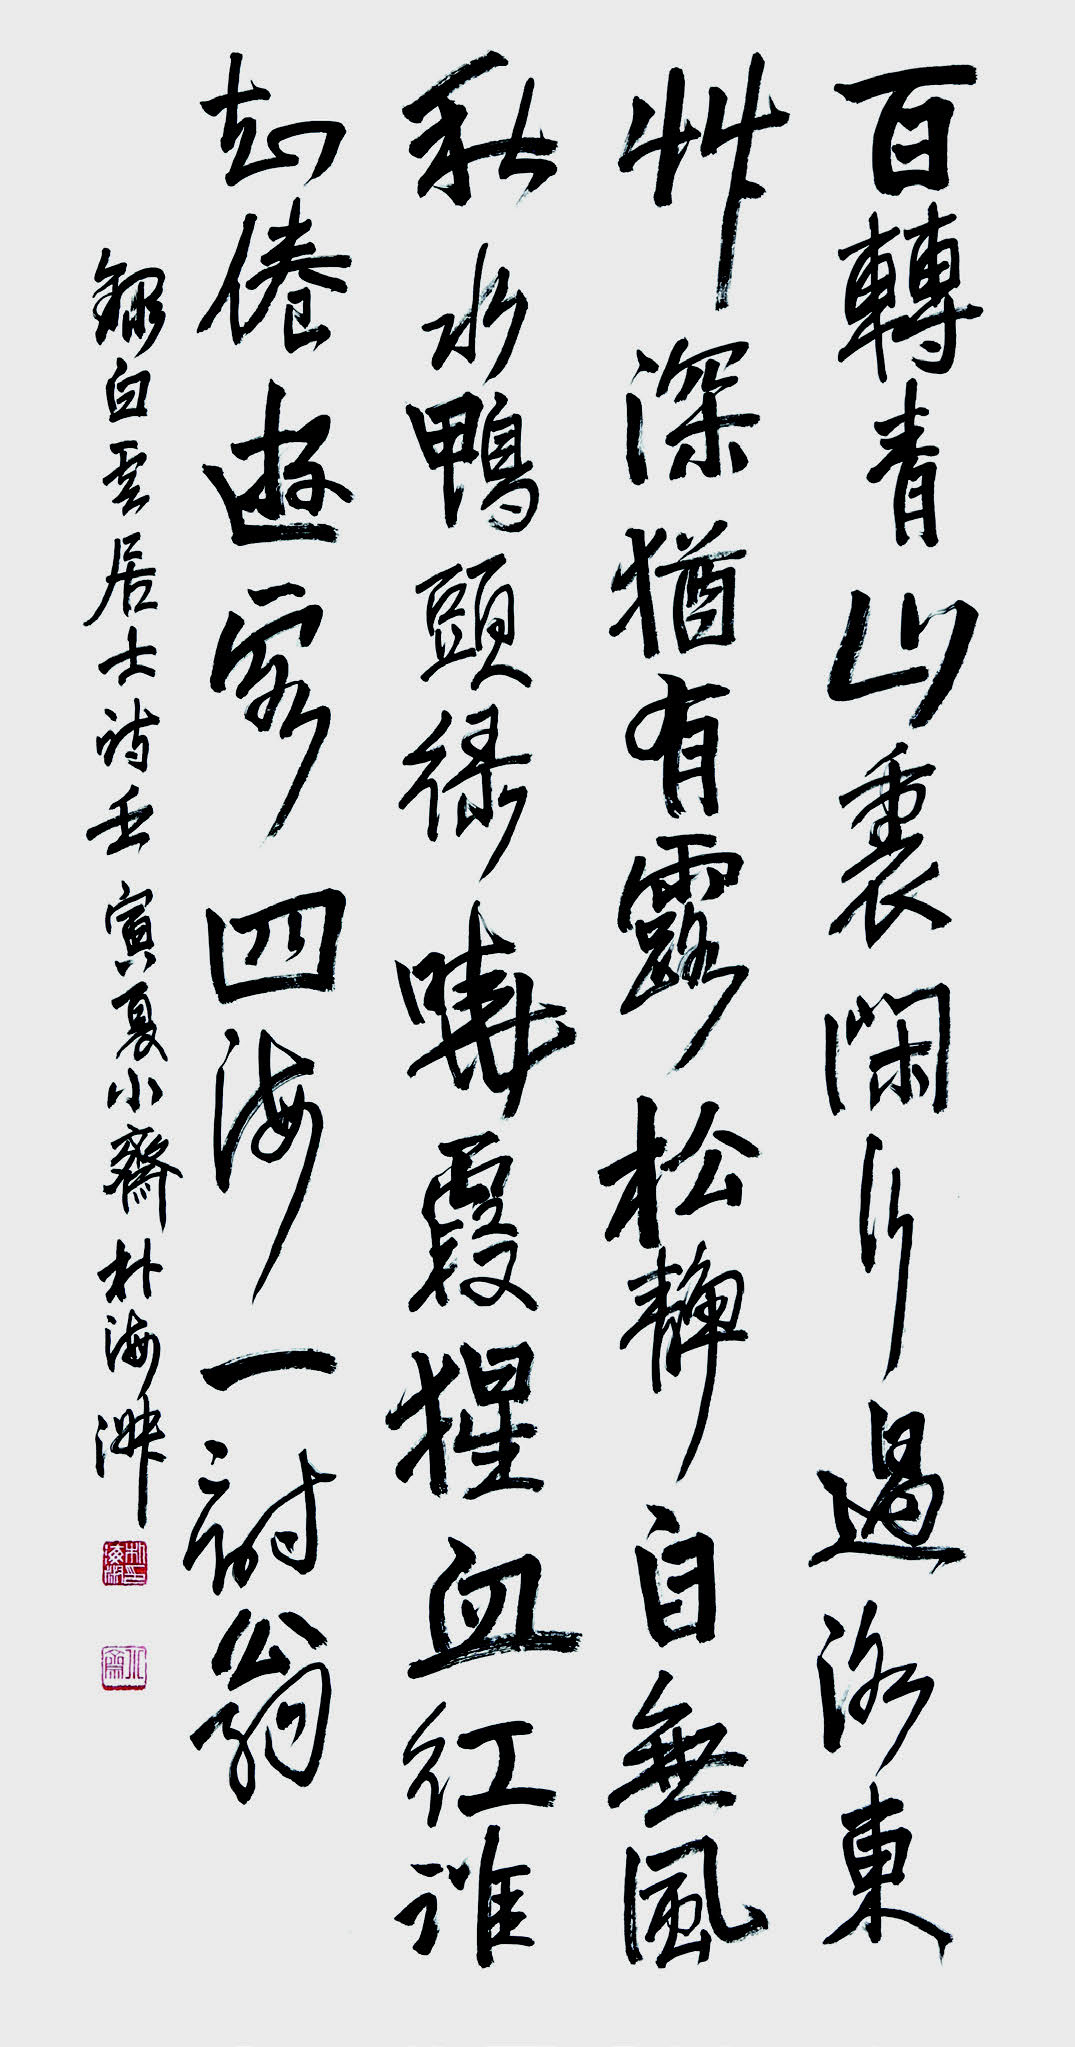 百轉青山裏閑行過洛東
艸深猶有露松靜自無風
秋水鴨頭綠曉霞猩血紅誰
知倦遊客四海一詩翁
錄白雲居士詩壬寅夏小齋朴海淑